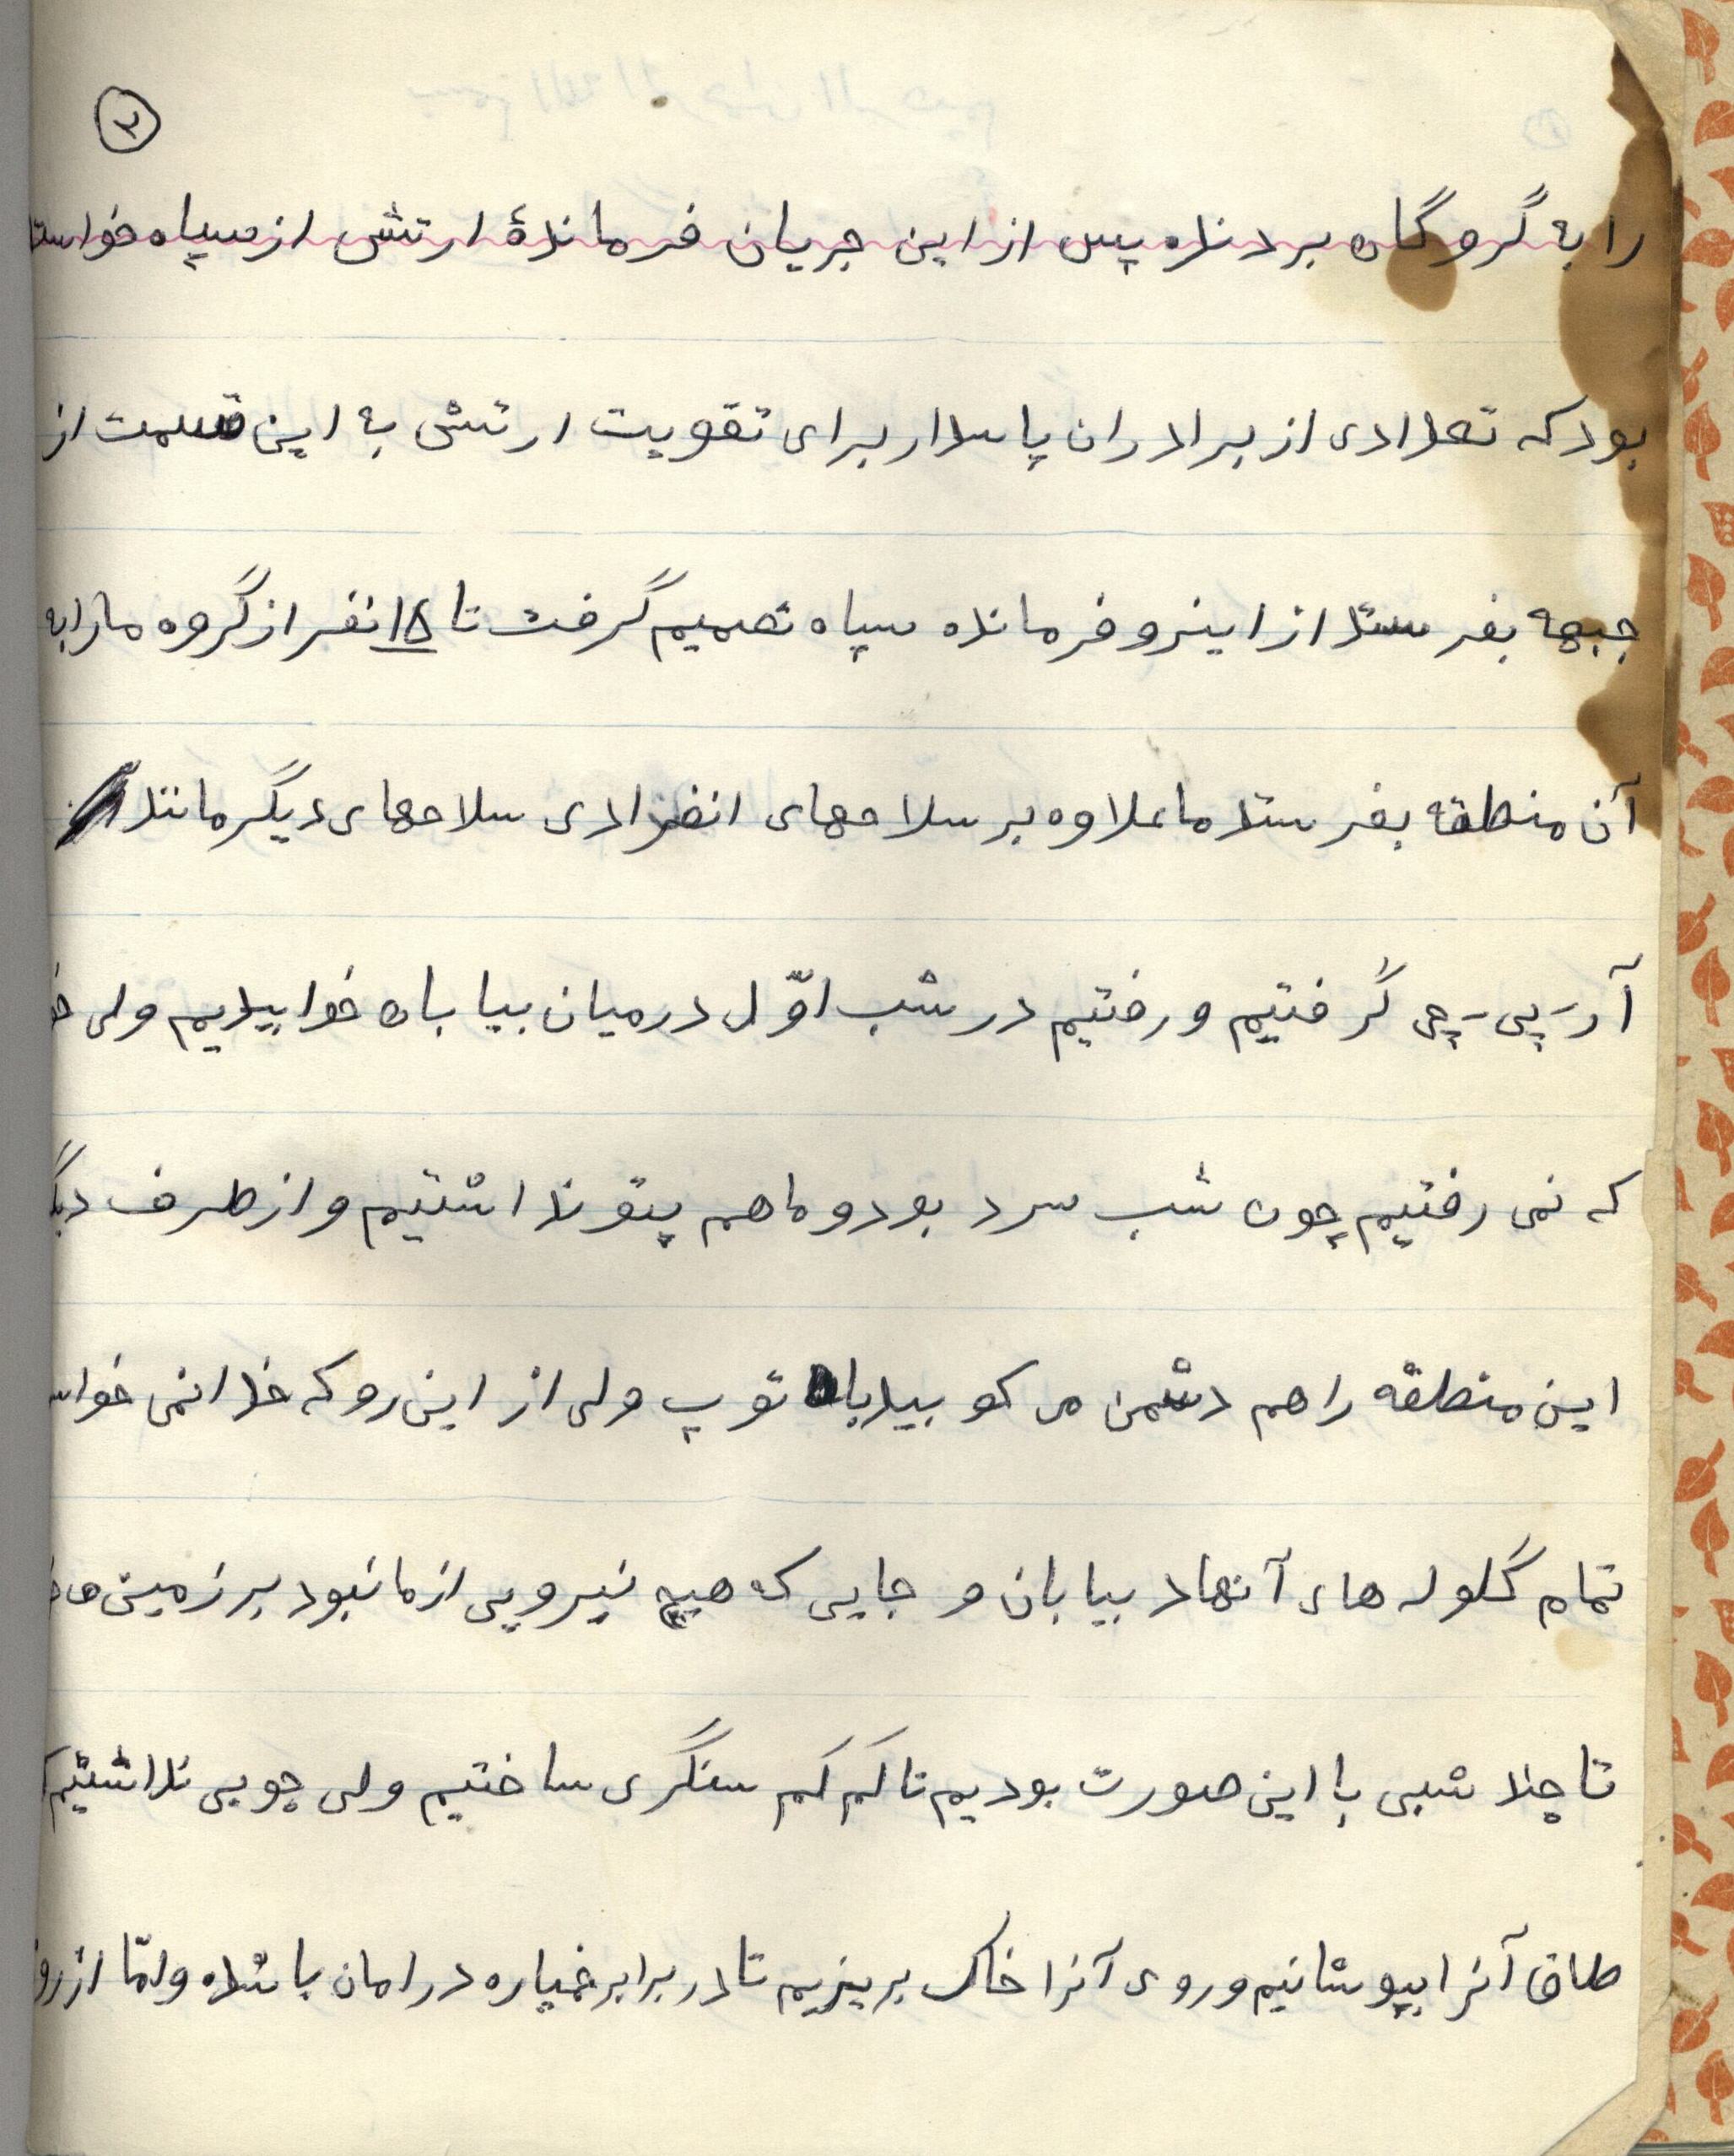 ۲
را به گروگان بردند. پس از این جریان فرماندهٔ ارتش از سپاه خواسته
بود که تعدادی از برادران پاسدار برای تقویت ارتش به این قسمت از
جبهه بفرستد از اینرو فرمانده سپاه تصمیم گرفت تا ۱۵ نفر از گروه ما را به
آن منطقه بفرستد ما علاوه بر سلاحهای انفرادی سلاحهای دیگر مانند
آر-پی-چی گرفتیم و رفتیم در شب اوّل در میان بیابان خوابیدیم ولی
که نمی رفتیم چون شب سرد بود و ما هم پتو نداشتیم و از طرف دیگر
این منطقه را هم دشمن می کوبید با توپ ولی از این رو که خدا نمی خواست
تمام گلوله های آنها در بیابان و جایی که هیچ نیرویی از ما نبود بر زمین می
تا چند شبی با این صورت بودیم تا کم کم سنگری ساختیم ولی چوبی نداشتیم که
طاق آنرا بپوشانیم و روی آنرا خاک بریزیم تا در برابر خمپاره در امان باشد. ولمّا از رو